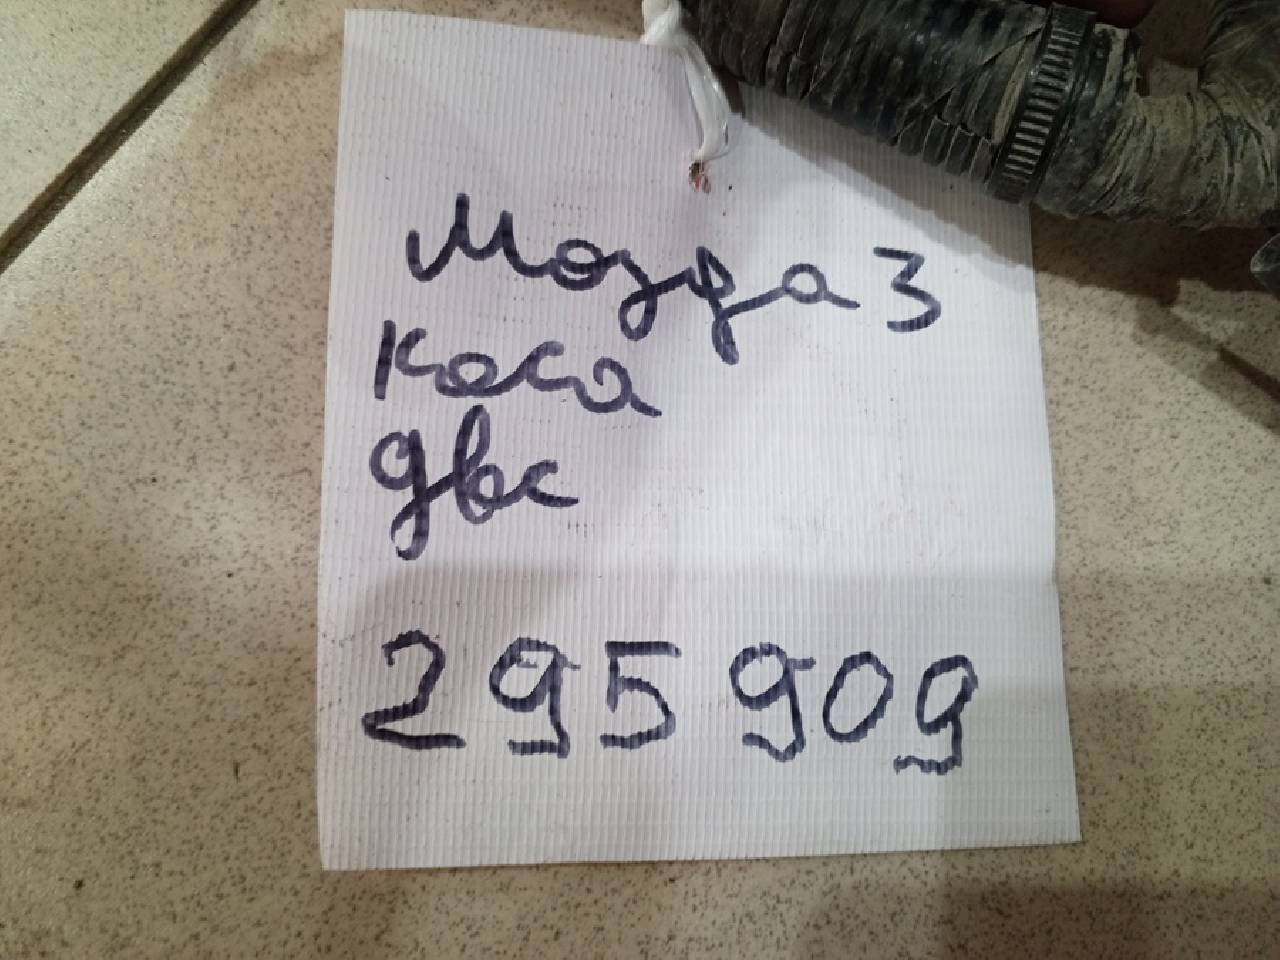 Мозда 3
коса
двс
295909